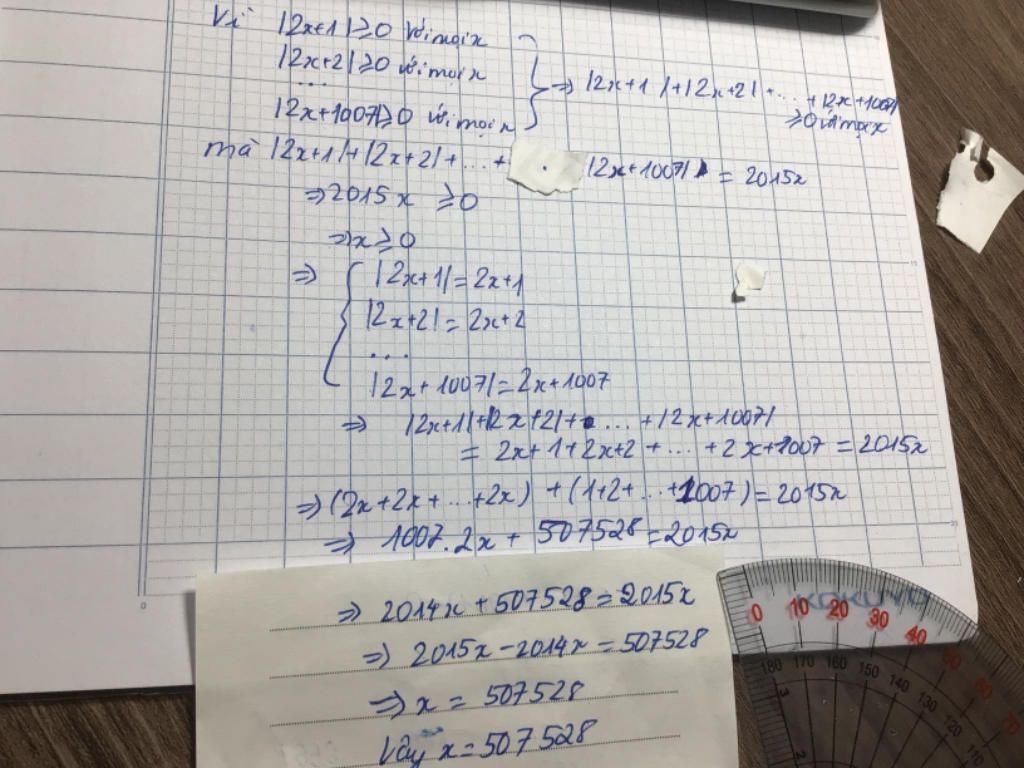 Vì |2x+1|≥0 với mọi x
|2x+2|≥0 với mọi x
...
|2x+1007|≥0 với mọi x
⇒ |2x+1|+|2x+2|+...+|2x+1007|
≥0 với mọi x
mà |2x+1|+|2x+2|+...+ |2x+1007| = 2015x
⇒2015x ≥0
⇒x≥0
⇒ |2x+1|=2x+1
|2x+2|=2x+2
...
|2x+1007|=2x+1007
⇒ |2x+1|+|2x+2|+...+|2x+1007|
= 2x+1+2x+2+...+2x+1007=2015x
⇒(2x+2x+...+2x)+(1+2+...+1007)=2015x
⇒ 1007.2x+507528=2015x
⇒ 2014x+507528=2015x
⇒ 2015x-2014x=507528
⇒ x = 507528
Vậy x=507528
KOKUYO
0 10 20 30 40 50 60 70
180 170 160 150 140 130 120 110